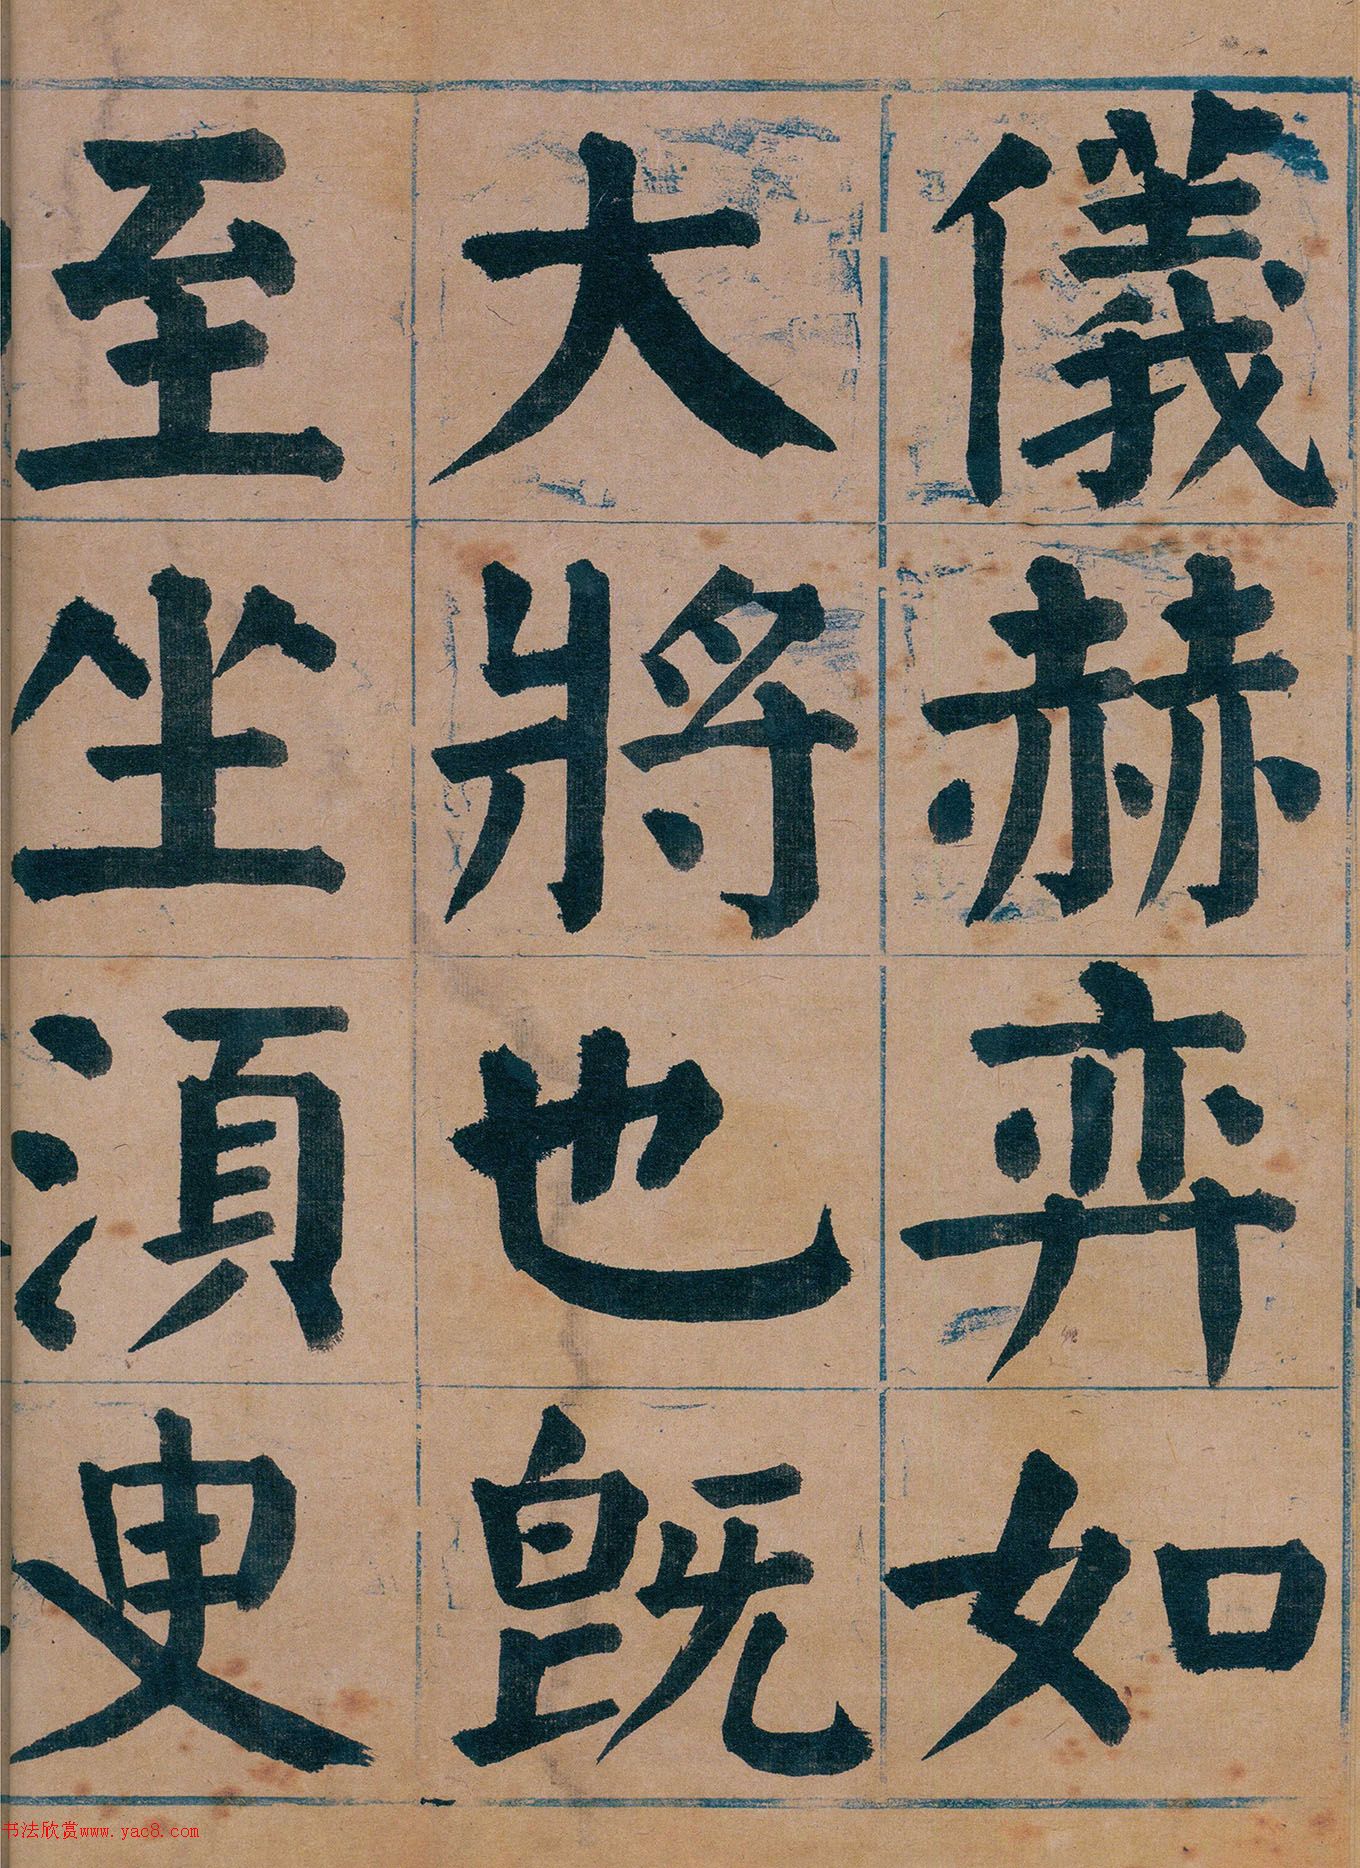 儀赫弈如
大將也既
至坐湏叟
书法欣赏www.yac8.com